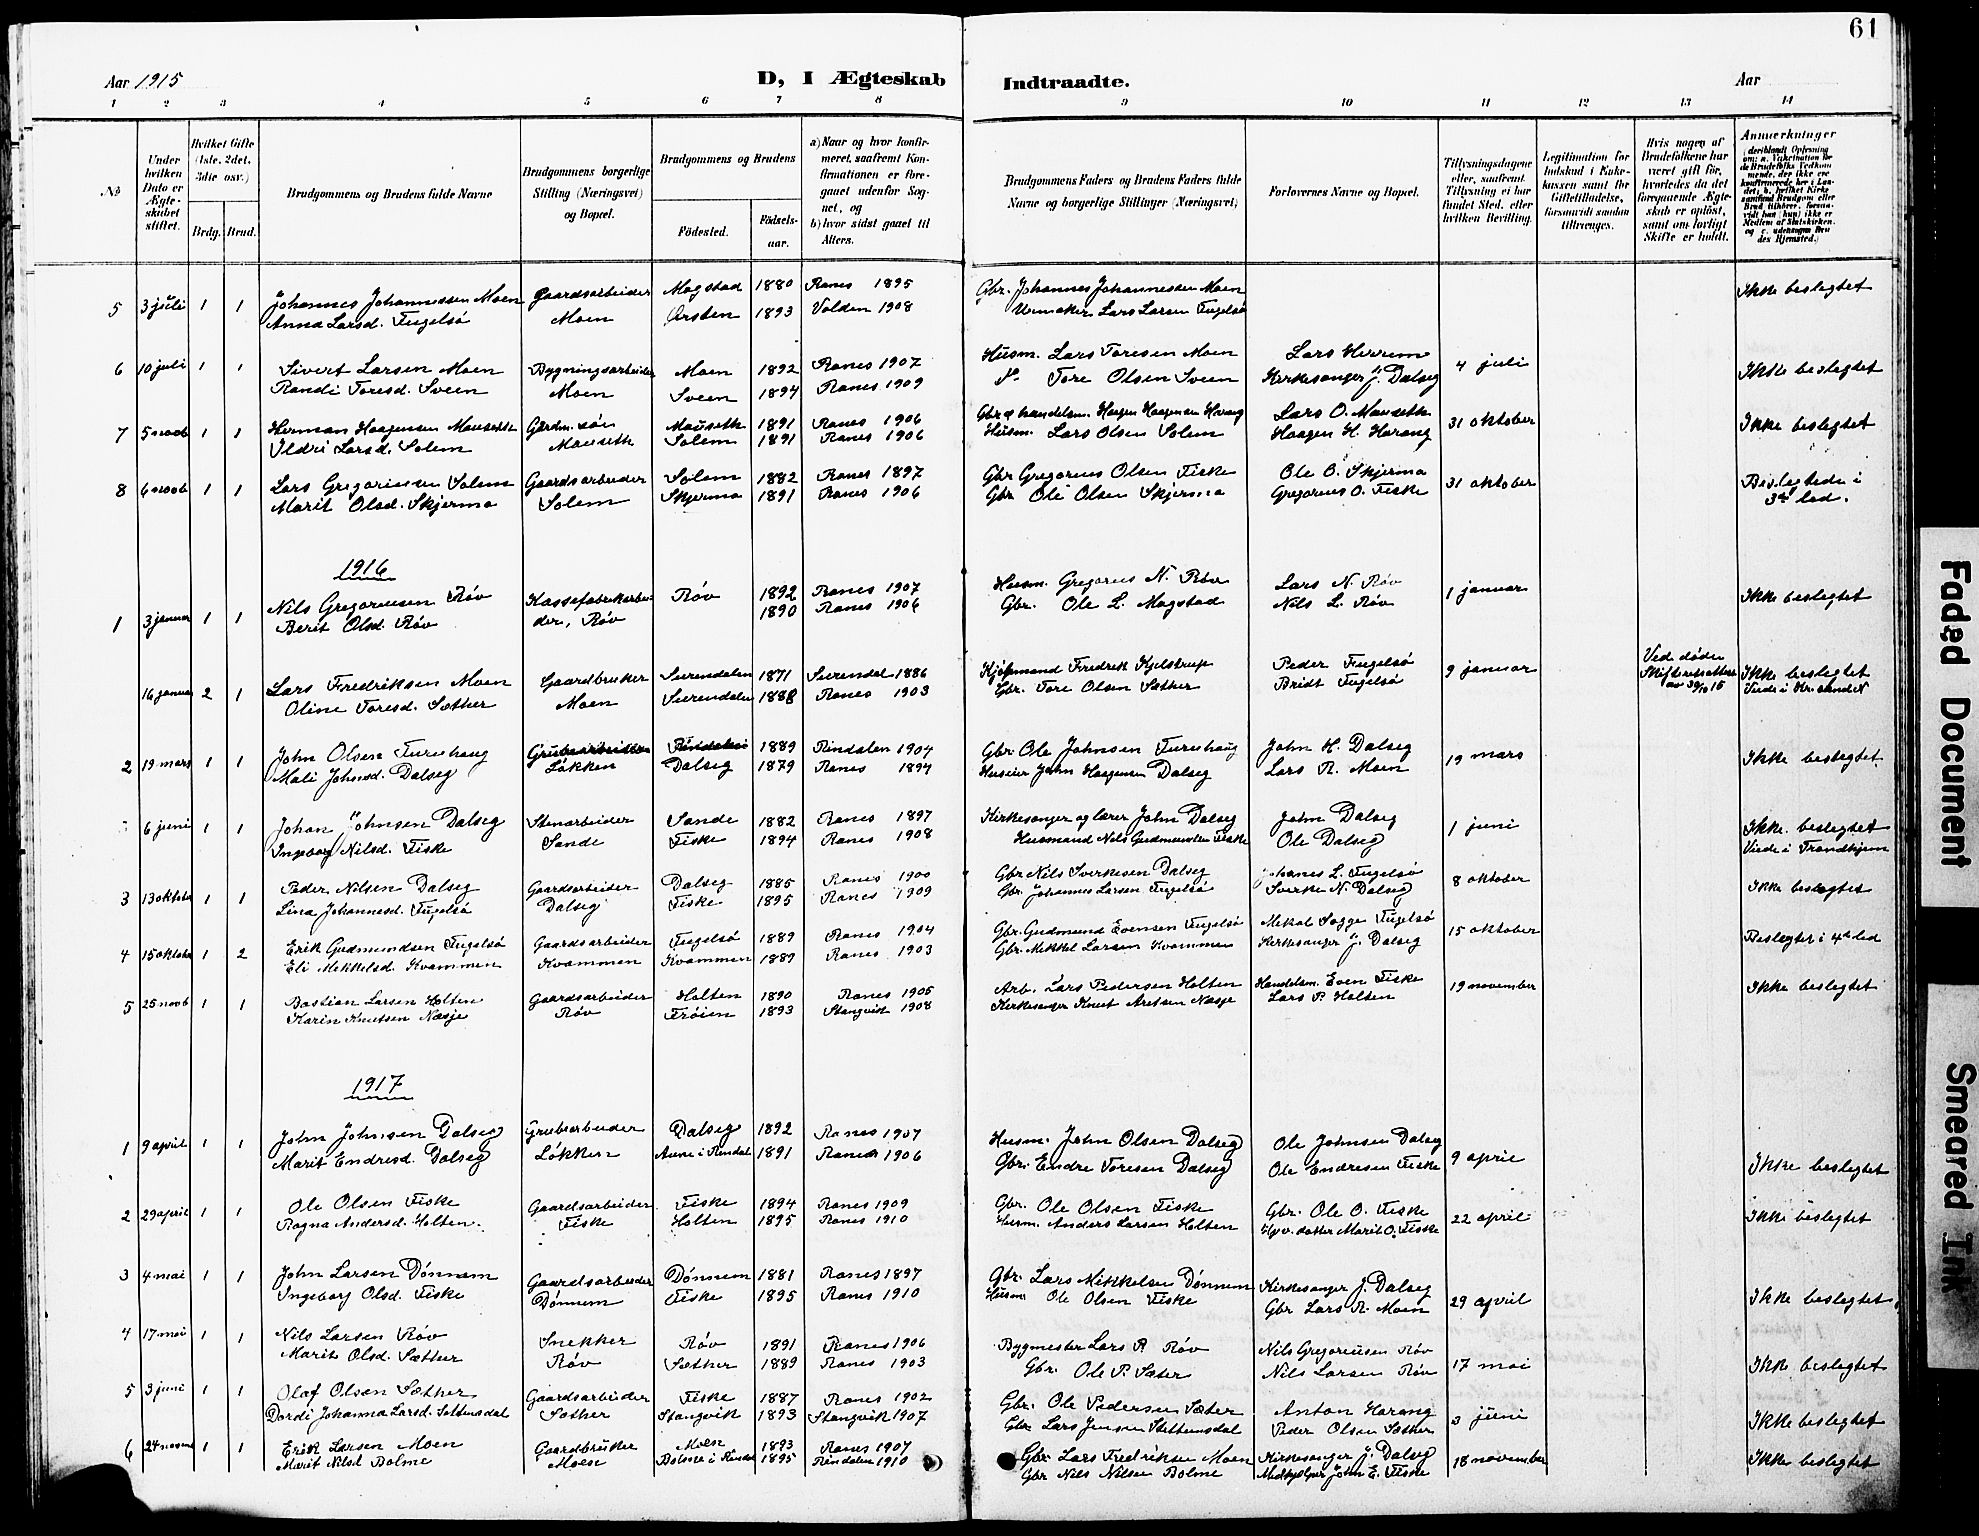 61
Aar 1915
D, I Ægteskab Indtraadte.
Aar
1 2 3 4 5 6 7 8 9 10 11 12 13 14
No
Under hvilken Dato er Ægteskabet stiftet.
Hvilket Gifte (1ste, 2det, 3die osv.)
Brdg. Brud.
Brudgommens og Brudens fulde Navne
Brudgommens borgerlige Stilling (Næringsvei) og Bopæl.
Brudgommens og Brudens
Fødested. Fødselsaar.
a) Naar og hvor konfirmeret, saafremt Konfirmationen er foregaaet udenfor Sognet, og b) hvor sidst gaaet til Alters.
Brudgommens Faders og Brudens Faders fulde Navne og borgerlige Stillinger (Næringsvei)
Forlovernes Navne og Bopæl.
Tillysningsdagene eller, saafremt Tillysning ei har fundet Sted, efter hvilken Bevilling.
Legitimation for Indskud i Enkekassen samt for Giftetilladelse, forsaavidt saadan tiltrænges.
Hvis nogen af Brudefolkene har været gift før, hvorledes da det foregaaende Ægteskab er opløst, samt om lovligt Skifte er holdt.
Anmærkninger
5 3 juli 1 1 Johannes Johannessen Moen Gaardsarbeider Mogstad 1880 Ranes 1895 Gbr. Johannes Johannessen Moen Ikke beslegtet
Anna Larsd. Fugelsø Moen Ørsten 1893 Volden 1908 Urmaker Lars Larsen Fugelsø
6 10 juli 1 1 Sivert Larsen Moen Bygningsarbeider Moen 1892 Ranes 1907 Husm. Lars Toresen Moen Lars Herrem 4 juli Ikke beslegtet
Randi Toresd. Sveen Moen Sveen 1894 Ranes 1909 Tore Olsen Sveen Kirkesanger J. Dalseg
7 5 novb 1 1 Herman Haagensen Mauseth Gårdm. søn Mauseth 1891 Ranes 1906 Gbr & handelsm. Haagen Haagensen Harang Lars O. Mauseth 31 oktober Ikke beslegtet
Ildri Larsd. Solem Mauseth Solem 1891 Ranes 1906 Husm. Lars Olsen Solem Haagen H. Harang
8 6 novb 1 1 Lars Gregoriusen Solem Gaardsarbeider Solem 1882 Ranes 1897 Gbr Gregorius Olsen Fiske Ole O. Skjermo 31 oktober Beslegtede i
Marit Olsd. Skjermo Solem Skjermo 1891 Ranes 1906 Gbr Ole Olsen Skjermo Gregorius O. Fiske 3die led.
1916
1 3 januar 1 1 Nils Gregoriusen Røv Kassefabrikarbei- Røv 1892 Ranes 1907 Husm. Gregorius N. Røv Lars N. Røv 1 januar Ikke beslegtet
Berit Olsd. Røv der, Røv 1890 Ranes 1906 Gbr. Ole L. Mogstad Nils L. Røv
16 januar 2 1 Lars Fredriksen Moen Gaardbruker Surendalen 1871 Surendal 1886 Kjøpmand Fredrik Kjelstrup Peder Fugelsø 9 januar Ved døden Skifteretsattest av 30/10 15 Ikke beslegtet
Oline Toresd. Sæther Moen Surendalen 1888 Ranes 1903 Gbr. Tore Olsen Sæther Bridt Fugelsø Viede i Kr.sund N
2 19 mars 1 1 John Olsen Furuhaug Grubearbeider Rindalen 1889 Rindalen 1904 Gbr Ole Johnsen Furuhaug John H. Dalseg 19 mars Ikke beslegtet
Mali Johnsd. Dalseg Løkken Dalseg 1879 Ranes 1894 Huseier John Haagensen Dalseg Lars R. Moen
6 juni 1 1 Johan Johnsen Dalseg Stenarbeider Sande 1882 Ranes 1897 Kirkesanger og lærer John Dalseg John Dalseg 1 juni Ikke beslegtet
Ingeborg Nilsd. Fiske Sande Fiske 1894 Ranes 1908 Husmand Nils Gudmundsen Fiske Ole Dalseg Viede i Trondhjem
3 13 oktober 1 1 Peder Nilsen Dalseg Gaardsarbeider Dalseg 1885 Ranes 1900 Gbr Nils Sverkesen Dalseg Johanes L. Fugelsø 8 oktober Ikke beslegtet
Lina Johannesd. Fugelsø Dalseg Fiske 1895 Ranes 1909 Gbr. Johannes Larsen Fugelsø Sverke N. Dalseg
4 15 oktober 1 2 Erik Gudmundsen Fugelsø Gaardsarbeider Fugelsø 1889 Ranes 1904 Gbr. Gudmund Evensen Fugelsø Mikal Sogge Fugelsø 15 oktober Beslegtet i 4de led
Eli Mikkelsd. Kvammen Kvammen Kvammen 1889 Ranes 1903 Gbr Mikkel Larsen Kvammen Kirkesanger J. Dalseg
5 25 novb 1 1 Bastian Larsen Holten Gaardsarbeider Holten 1890 Ranes 1905 Arb. Lars Pedersen Holten Handelsm. Even Fiske 19 november Ikke beslegtet
Karin Knutsen Næsje Røv Frøien 1893 Stangvik 1908 Kirkesanger Knut Aretsen Næsje Lars P. Holten
1917
1 9 april 1 1 John Johnsen Dalseg Grubearbeider Dalseg 1892 Ranes 1907 Husm. John Olsen Dalseg Ole Johnsen Dalseg 9 april Ikke beslegtet
Marit Endresd. Dalseg Løkken Aune i Rindal 1891 Ranes 1906 Gbr. Endre Toresen Dalseg Ole Endresen Fiske
2 29 april 1 1 Ole Olsen Fiske Gaardsarbeider Fiske 1894 Ranes 1909 Gbr. Ole Olsen Fiske Gbr. Ole O. Fiske 22 april Ikke beslegtet
Ragna Andersd. Holten. Fiske Holten 1895 Ranes 1910 Husm. Anders Larsen Holten datter Marit O. Fiske
3 4 mai 1 1 John Larsen Dønnem Gaardsarbeider Dønnem 1881 Ranes 1897 Gbr. Lars Mikkelsen Dønnem Kirkesanger J. Dalseg 29 april Ikke beslegtet
Ingeborg Olsd. Fiske Dønnem Fiske 1895 Ranes 1910 Husm Ole Olsen Fiske Gbr Lars R. Moen
4 17 mai 1 1 Nils Larsen Røv Snekker Røv 1891 Ranes 1906 Bygmester Lars P. Røv Nils Gregoriusen Røv 17 mai Ikke beslegtet
Marit Olsd. Sæther Røv Sæther 1889 Ranes 1903 Gbr. Ole P. Sæter Nils Larsen Røv
5 3 juni 1 1 Olaf Olsen Sæther Gaardsarbeider Fiske 1887 Ranes 1902 Gbr. Ole Pedersen Sæter Anton Harang 3 juni Ikke beslegtet
Dordi Johanna Larsd. Settemsdal Sæther Stangvik 1893 Stangvik 1907 Gbr Lars Jensen Settemsdal Peder Olsen Sæther
6 24 novemb 1 1 Erik Larsen Moen Gaardbruker Moen 1893 Ranes 1907 Gbr Lars Fredriksen Moen Kirkesanger J. Dalseg 18 november Ikke beslegtet
Marit Nilsd Bolme Moen Bolme i Rindal 1895 Rindalen 1910 Gbr Nils Nilsen Bolme John E. Fiske
Faded Document
Smeared Ink